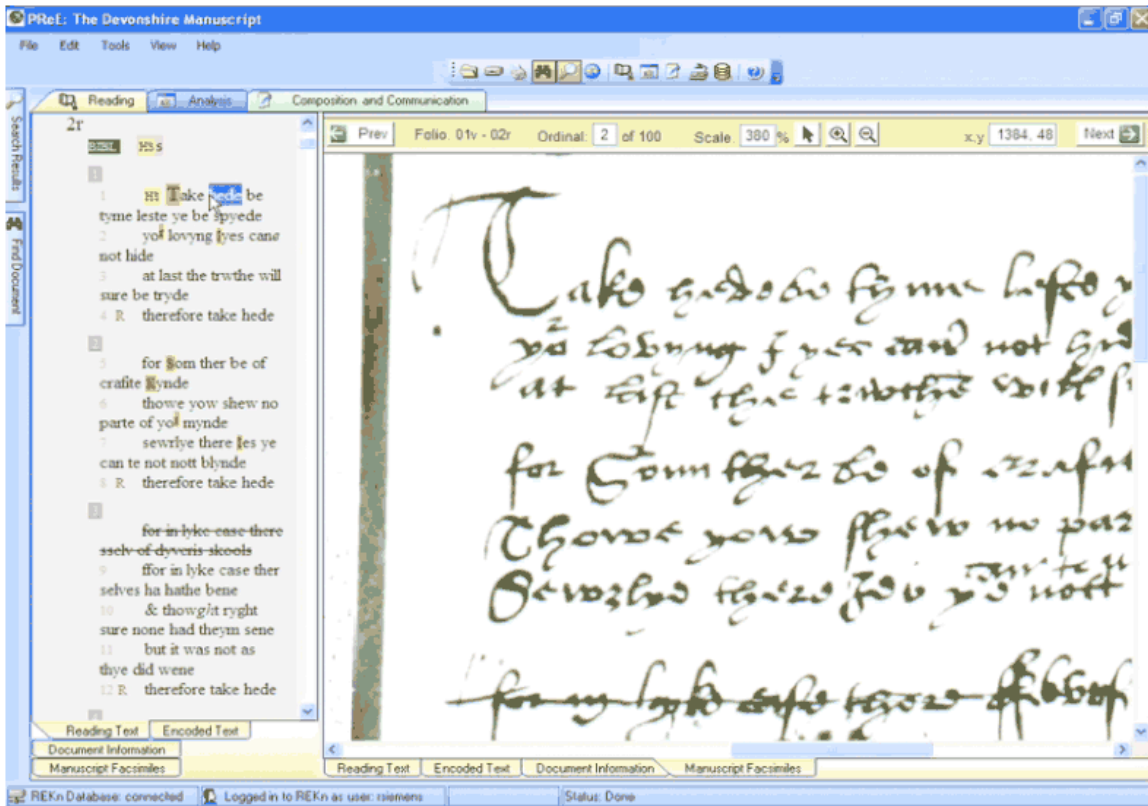 PReE: The Devonshire Manuscript
File Edit Tools View Help
Reading Analysis Composition and Communication
Search Results
Find Document
2r
H3 s
1
1 H3 Take hede be
tyme leste ye be spyede
2 yor lovyng Iyes cane
not hide
3 at last the trwthe will
sure be tryde
4 R therefore take hede
2
5 for Som ther be of
crafite Kynde
6 thowe yow shew no
parte of yor mynde
7 sewrlye there Ies ye
can te not nott blynde
8 R therefore take hede
3
for in lyke case there
sselv of dyveris skools
9 ffor in lyke case ther
selves ha hathe bene
10 & thowght ryght
sure none had theym sene
11 but it was not as
thye did wene
12 R therefore take hede
Reading Text Encoded Text
Document Information
Manuscript Facsimiles
Prev Folio. 01v - 02r Ordinal: 2 of 100 Scale. 380 % x,y 1384, 48 Next
Take hede be tyme leste y
yor lovyng Iyes cane not hid
at last the trwthe will s
for Som ther be of crafit
Thowe yow shew no par
can te n
Sewrlye there Ies ye nott
for in lyke case there
Reading Text Encoded Text Document Information Manuscript Facsimiles
REKn Database: connected Logged in to REKn as user: rsiemens Status: Done